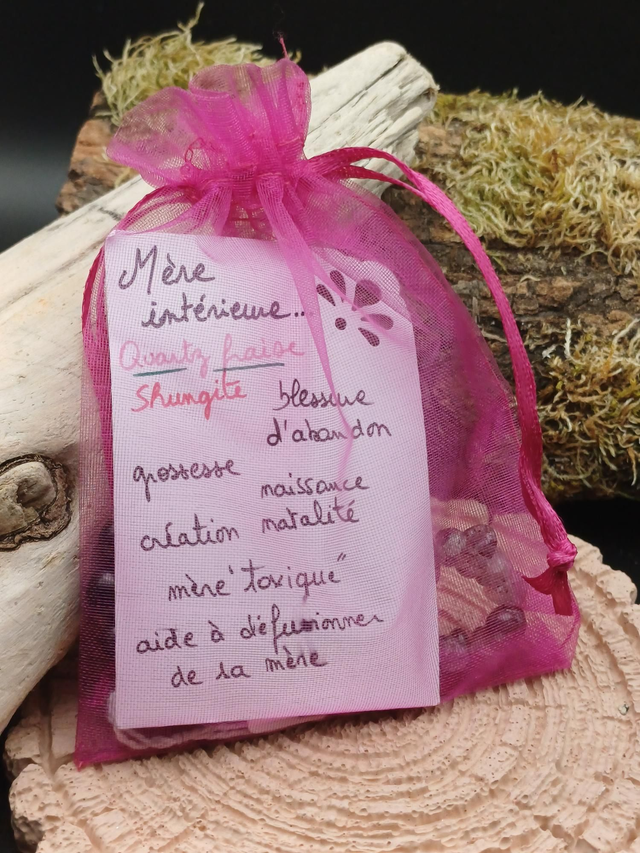 Mère
intérieure...
Quartz fraise
Shungite
blessure
d'abandon
grossesse
naissance
création natalité
mère "toxique"
aide à défusionner
de sa mère